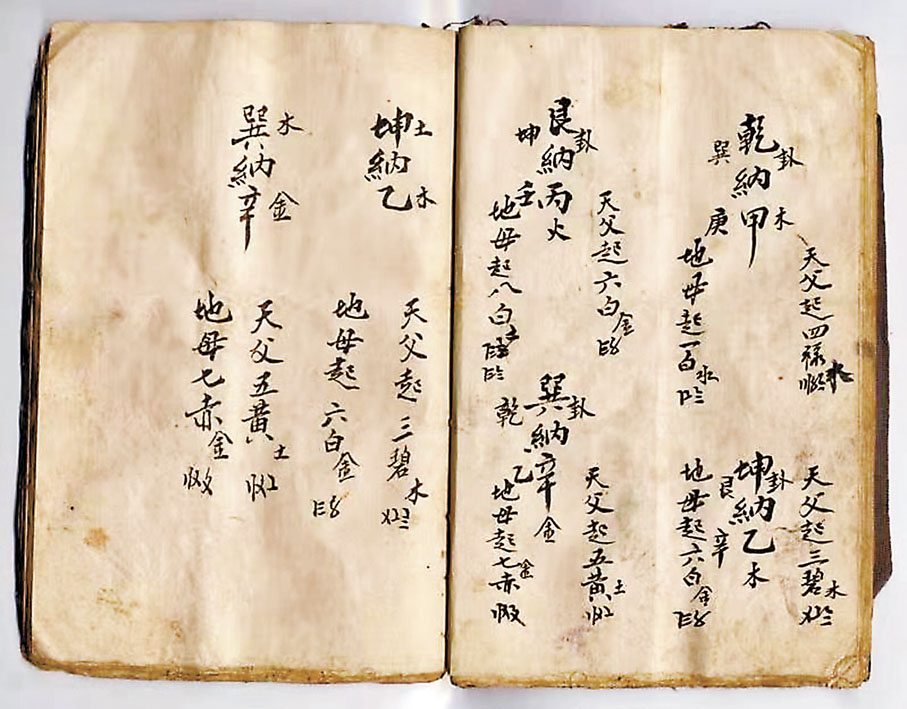 乾納甲
卦
木
巽
庚
天父起四祿
木
地母起一白水
坤納乙木
卦
艮
辛
天父起三碧木
地母起六白金
艮納丙火
卦
坤
壬
天父起六白金
地母起八白土
巽納辛金
卦
乾
乙
天父起五黃土
地母起七赤金
坤納乙
土
木
天父起三碧木
地母起六白金
巽納辛
木
金
天父五黃土
地母七赤金